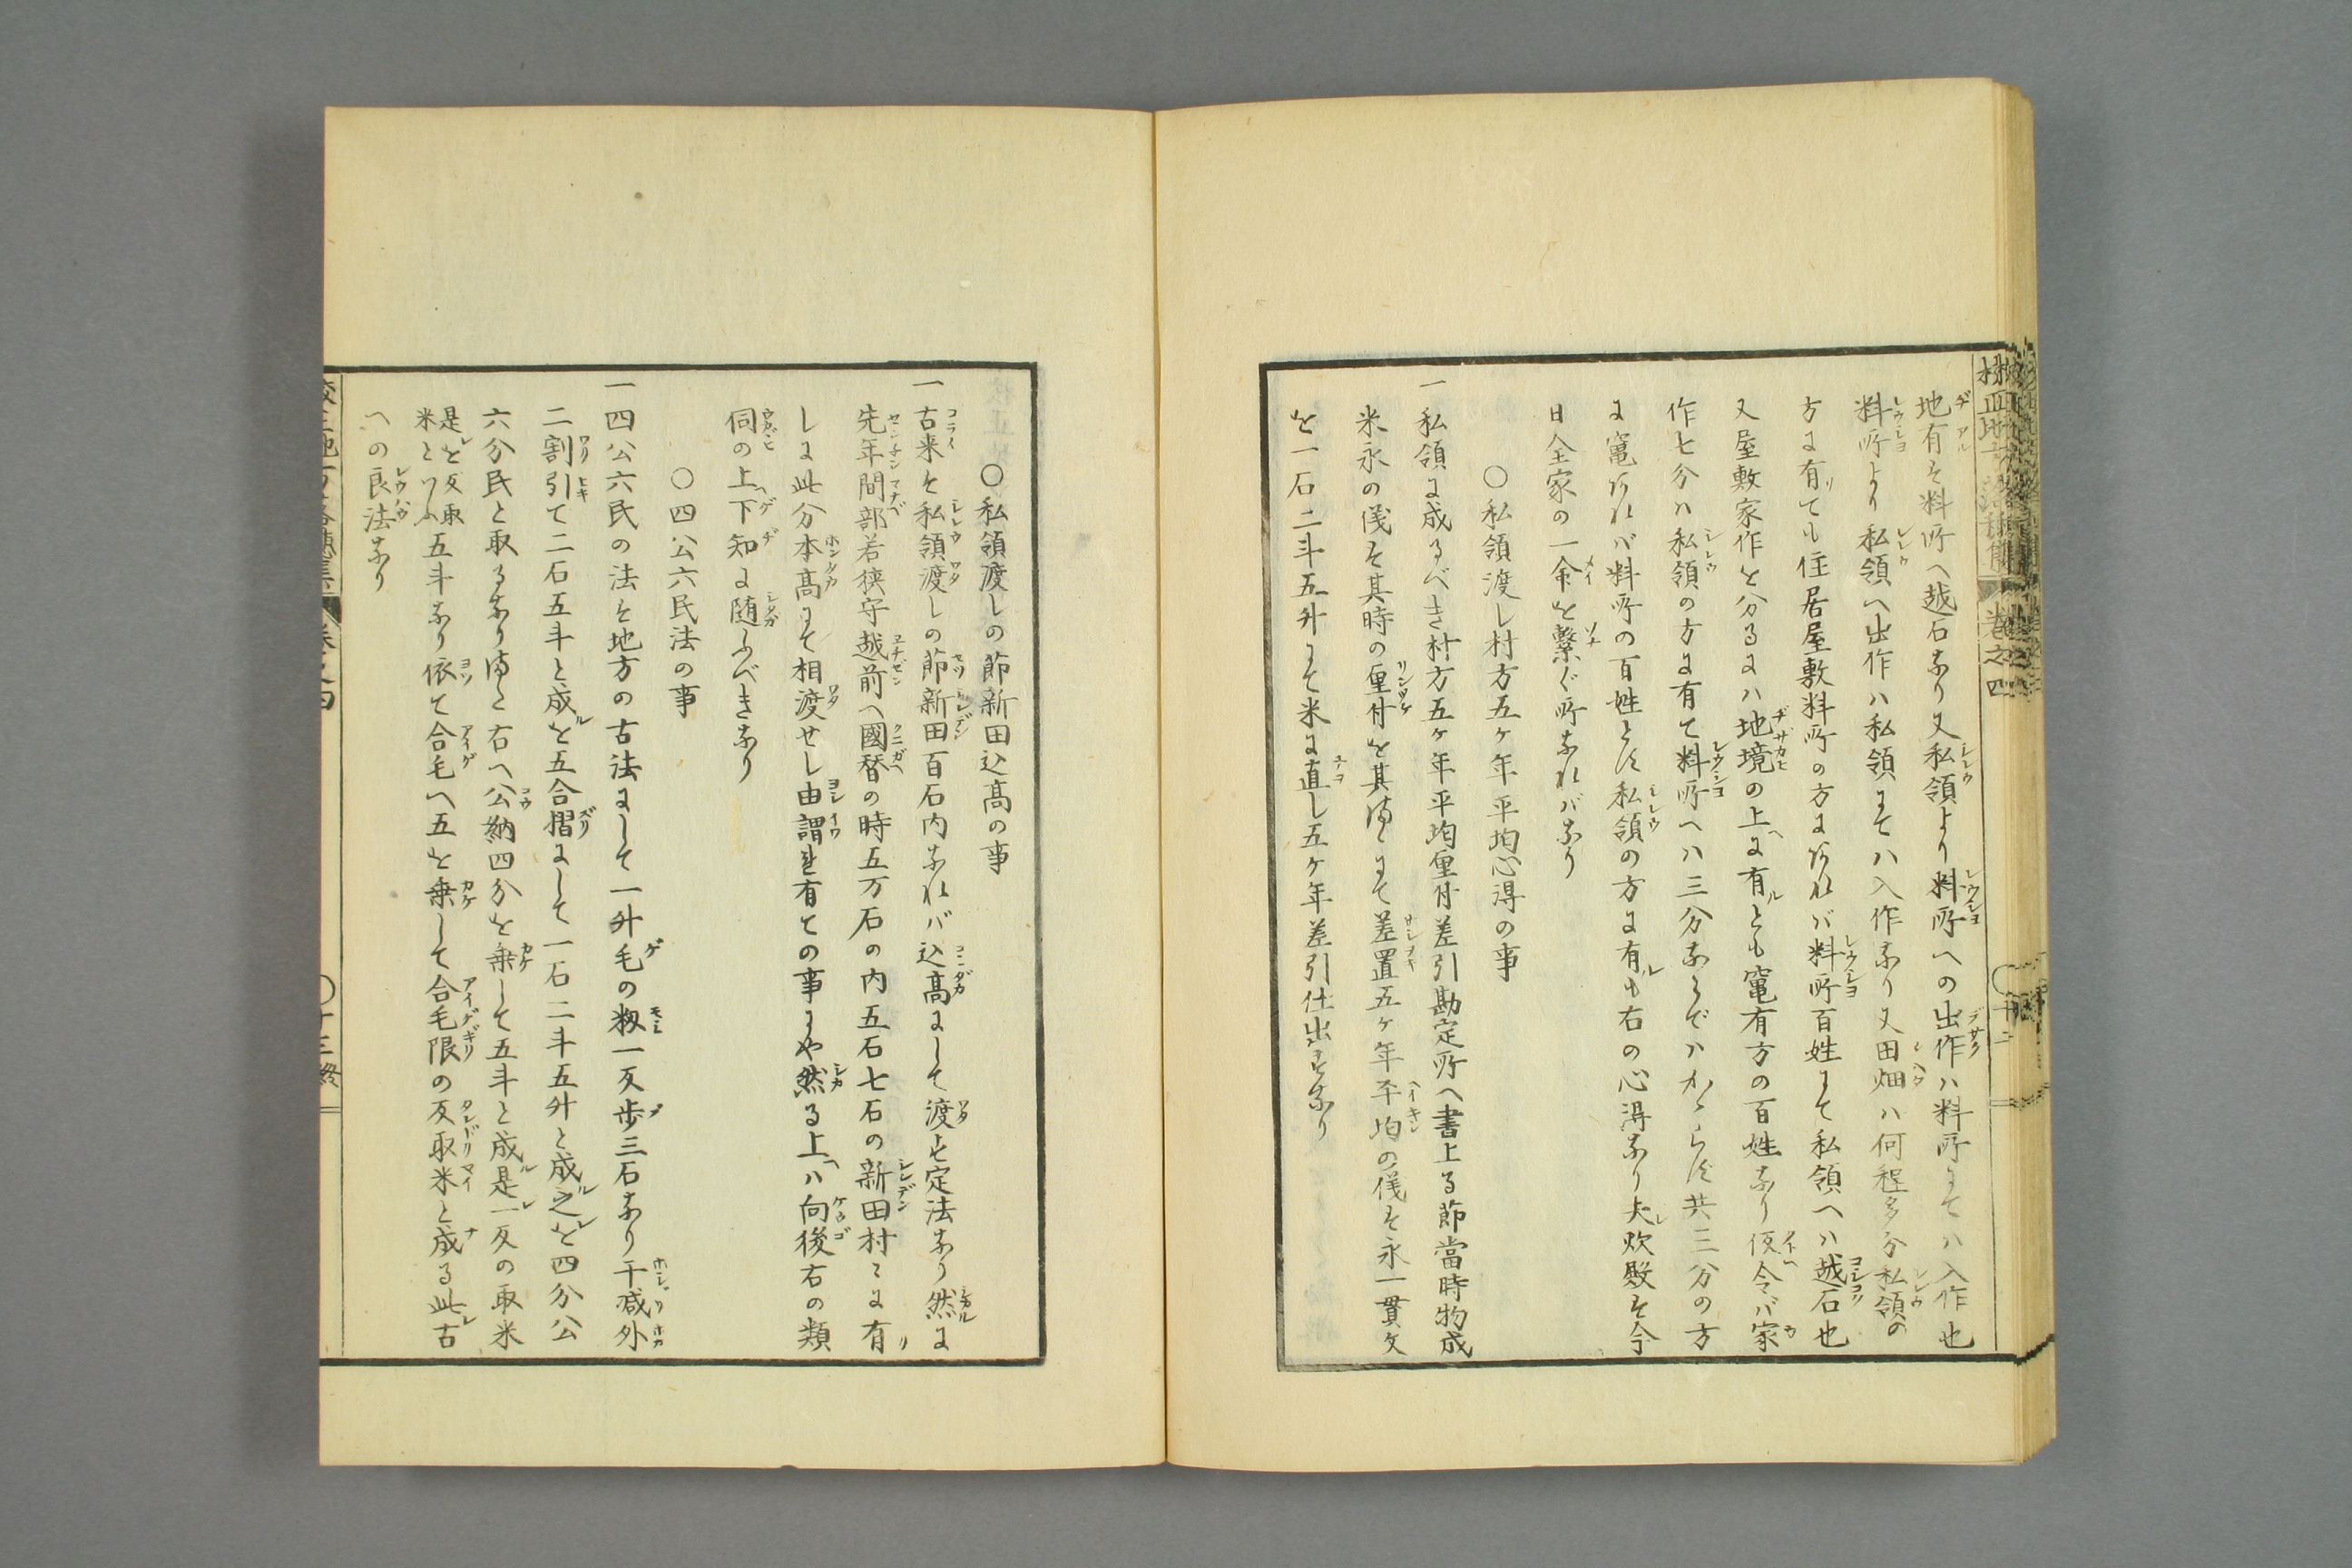 地有を料所へ越石なり又私領より料所への出作ハ料所にてハ入作也
料所より私領へ出作ハ私領にてハ入作なり又田畑ハ何程多分私領の
方に有ても住居屋敷料所の方にあれバ料所百姓にて私領へハ越石也
又屋敷家作を分るにハ地境の上に有とも竃有方の百姓なり仮令バ家
作七分ハ私領の方に有て料所へハ三分ならでハかゝらず共三分の方
に竃あれバ料所の百姓とす私領の方に有も右の心得なり夫炊殿を今
日全家の一命を繋ぐ所なれバなり
○私領渡し村方五ケ年平均心得の事
一私領に成るべき村方五ケ年平均厘付差引勘定所へ書上る節當時物成
米永の儀を其時の厘付を其侭にて差置五ケ年平均の儀を永一貫文
を一石二斗五升にて米に直し五ケ年差引仕出すなり
校正地方落穂集 巻之四 ○十二
○私領渡しの節新田込髙の事
一古来を私領渡しの節新田百石内なれバ込髙にして渡を定法なり然に
先年間部若狭守越前へ國替の時五万石の内五石七石の新田村々に有
しに此分本髙にて相渡せし由謂を有との事にや然る上ハ向後右の類
伺の上下知に随ふべきなり
○四公六民法の事
一四公六民の法を地方の古法にして一升毛の籾一反歩三石なり干减外
二割引て二石五斗と成を五合摺にして一石二斗五升と成之を四分公
六分民と取るなり侭て右へ公納四分を乗して五斗と成是一反の取米
是を反取米といふ五斗なり依て合毛へ五を乗して合毛限の反取米と成る此古
への良法なり
校正地方落穂集 巻之四 ○十三終